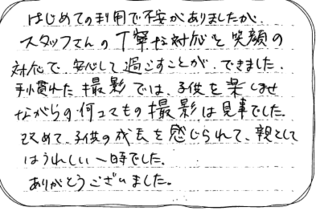 はじめての利用で不安がありましたが、
スタッフさんの丁寧な対応と笑顔の
対応で、安心して過ごすことができました。
手慣れた撮影では、子供を楽しませ
ながらの何コマもの撮影は見事でした。
改めて、子供の成長を感じられて、親として
はうれしい一時でした。
ありがとうございました。